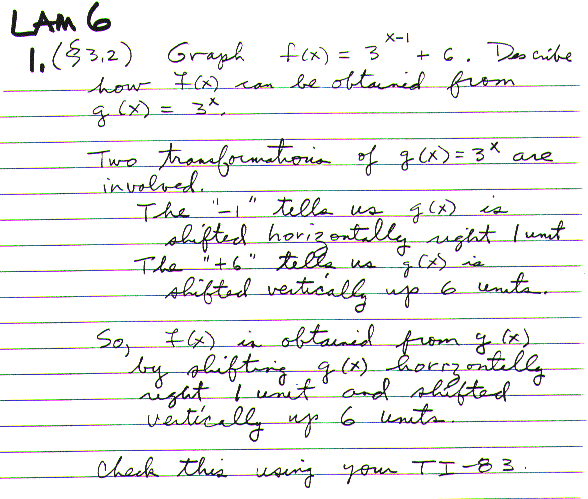 LAM 6
1. (§3.2) Graph f(x) = 3^(x-1) + 6. Describe
how f(x) can be obtained from
g(x) = 3^x.
Two transformations of g(x) = 3^x are
involved.
The "-1" tells us g(x) is
shifted horizontally right 1 unit
The "+6" tells us g(x) is
shifted vertically up 6 units.
So, f(x) is obtained from g(x)
by shifting g(x) horizontally
right 1 unit and shifted
vertically up 6 units.
Check this using your TI-83.